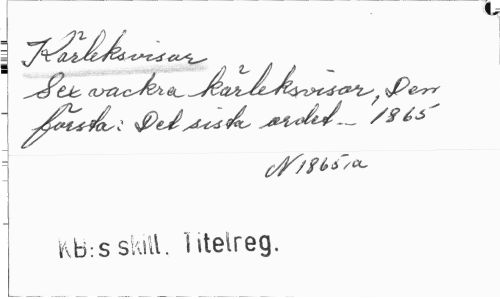 Kärleksvisor
Sex vackra kärleksvisor, Den
första: Det sista ordet – 1865
N 1865,a
KB:s skill. Titelreg.